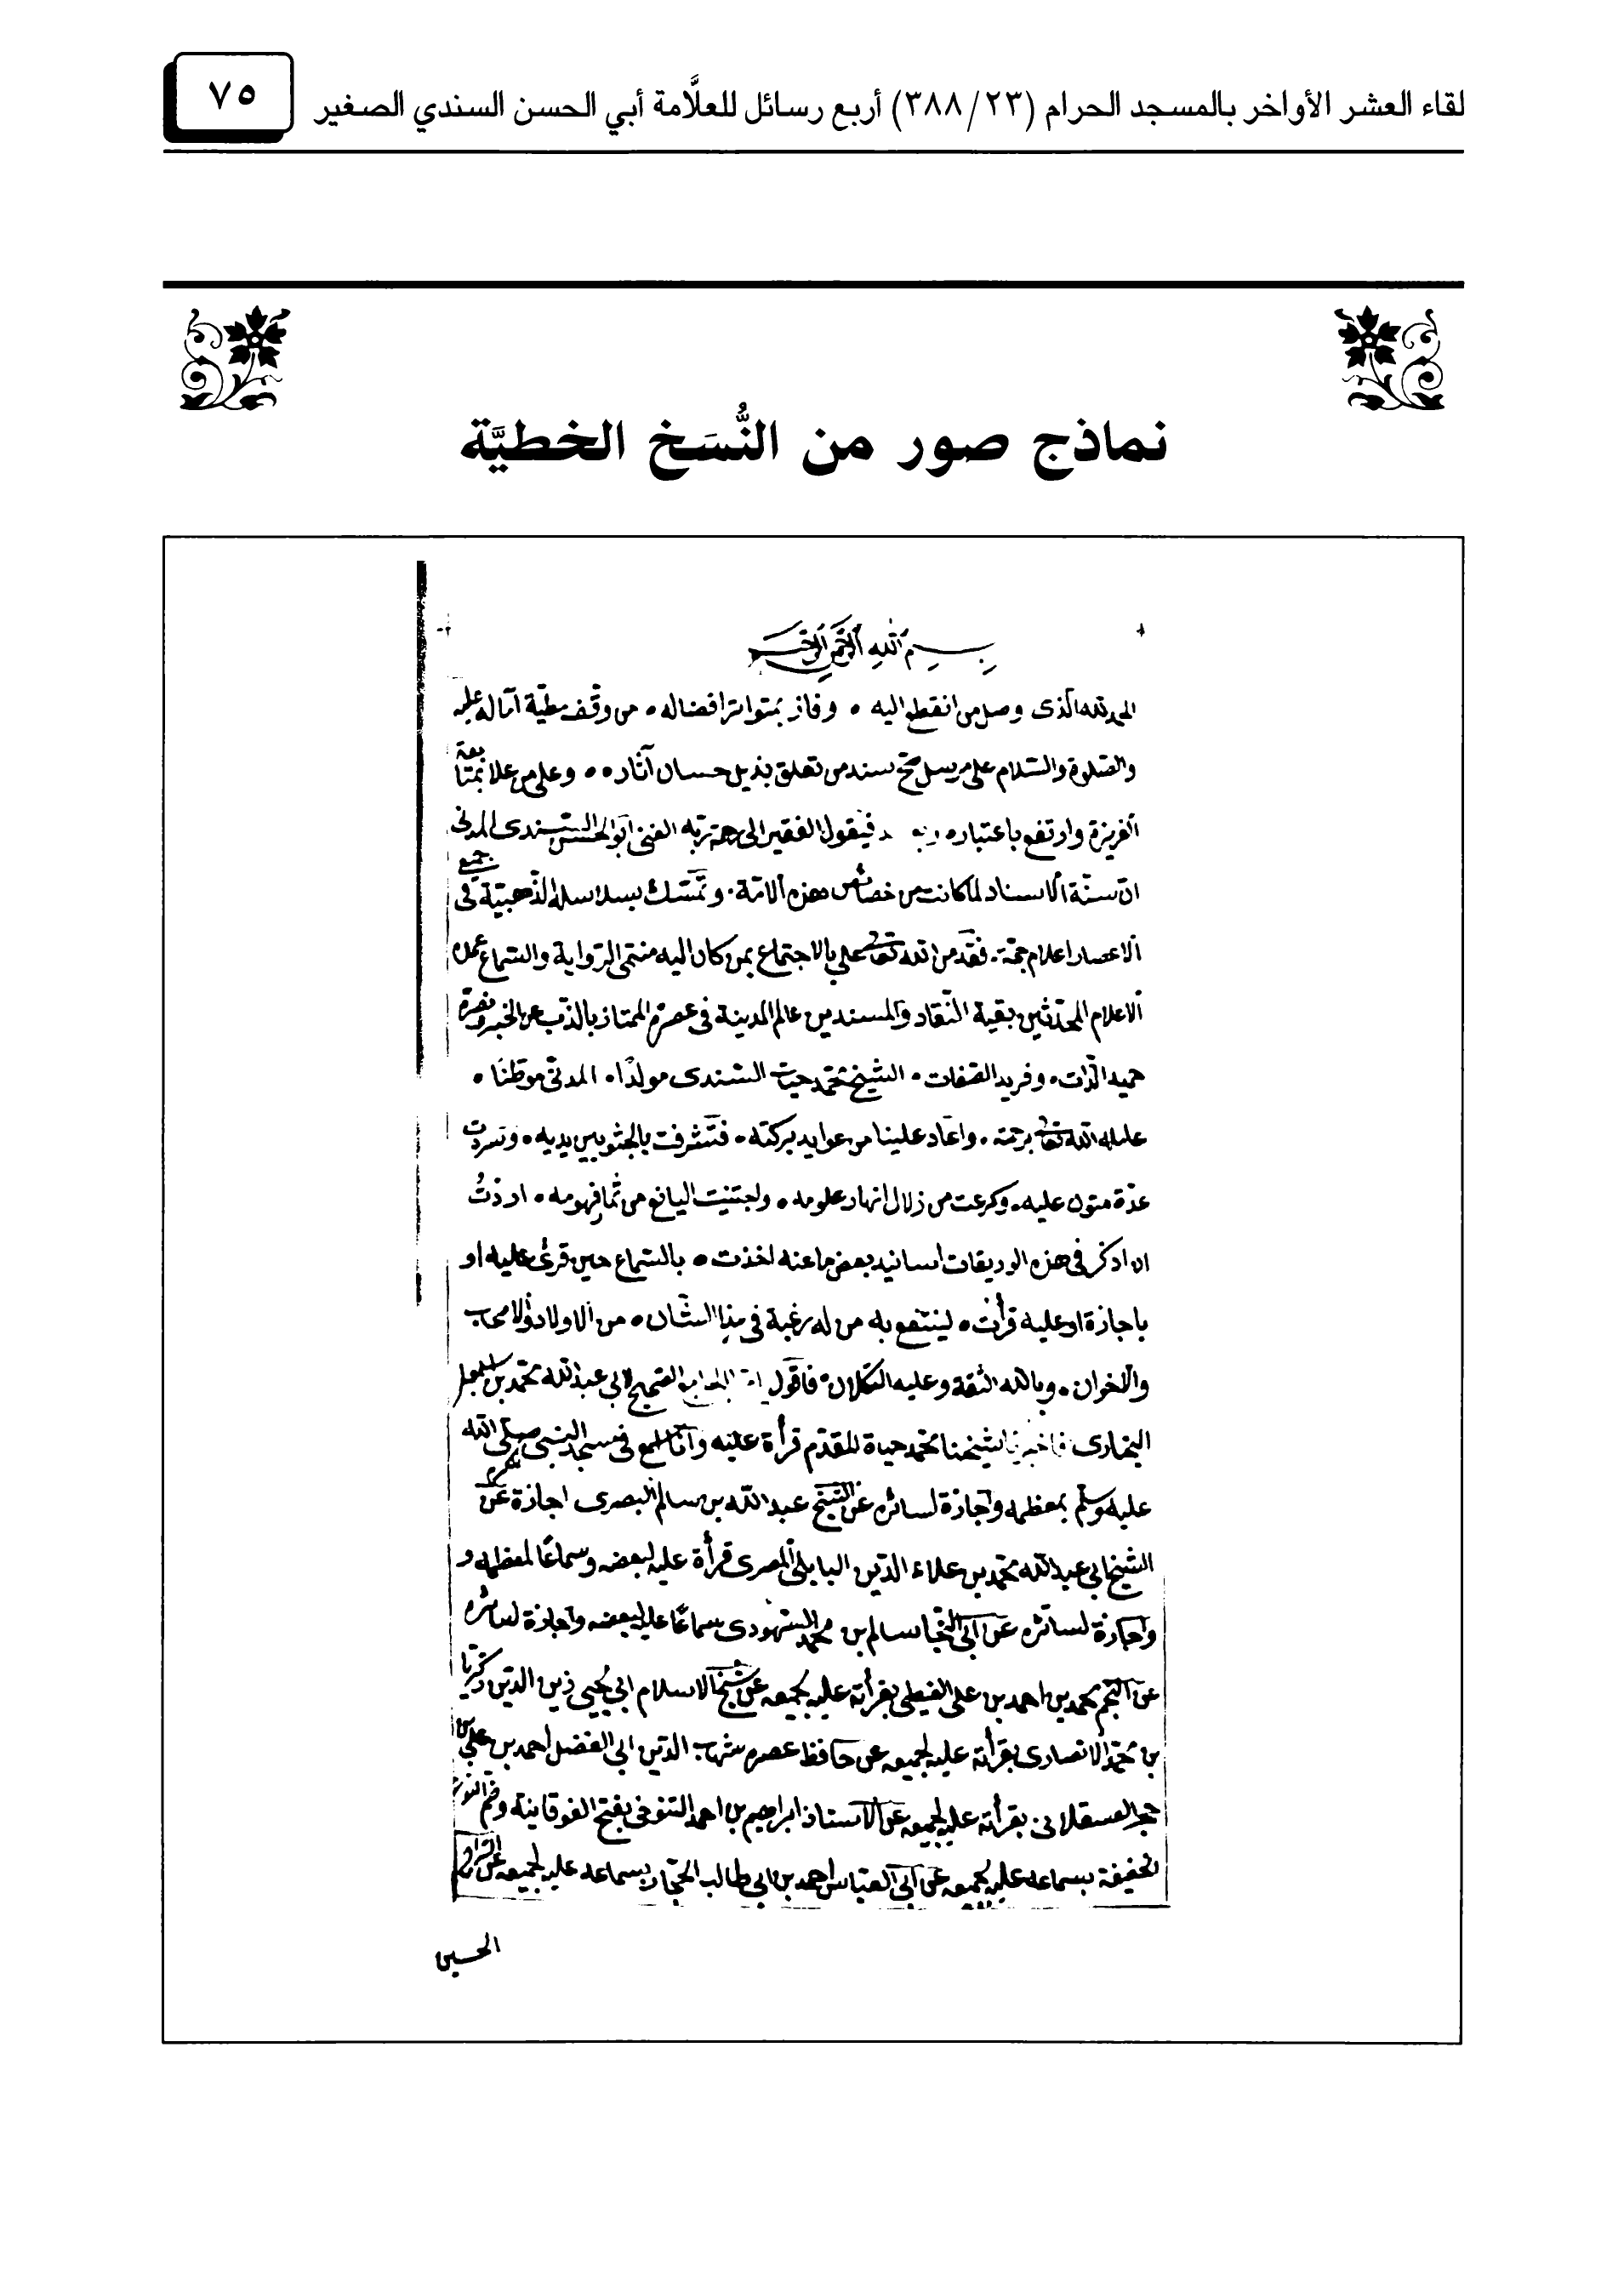 لقاء العشر الأواخر بالمسجد الحرام (٣٨٨/٢٣) أربع رسائل للعلَّامة أبي الحسن السندي الصغير
٧٥
نماذج صور من النُّسَخ الخطيَّة
بسم الله الرحمن الرحيم
الحمد لله الذى وصل من انقطع اليه ٠ وفاز بمتواتر افضاله ٠ من وقف مطيّة آماله عليه
والصلوة والسّلام على مرسل صحّ سند من تعلق بذيل حسان آثاره ٠ ٠ وعلى من علا بمتابعة
وارتفع باعتباره فيقول الفقير الى رحمة ربّه الغنى ابو الحسن السّندى المدنى
انّ سنّة الاسناد لما كانت من خصائص هذه الامّة ٠ وتمسّك بسلاسله الذّهبيّة فى جميع
الاعصار اعلام جمّة ٠ فقد من الله تعالى علي بالاجتماع بمن كان اليه منتهى الرّواية والسّماع عمدة
الاعلام المحدّثين بقية النّقاد والمسندين عالم المدينة فى عصره الممتاز بالذّب عن الخبر ونصره
حميد الذّات ٠ وفريد الصّفات ٠ الشيخ محمّد حيات السّندى مولدًا ٠ المدنّى موطنًا ٠
عامله الله تعالى برحمته ٠ واعاد علينا من عوايد بركته ٠ فتشرفت بالجثو بين يديه ٠ وسردت
عدّة متون عليه ٠ وكرعت من زلال انهار علومه ٠ واجتنيت اليانع من ثمار فهومه ٠ اردتُ
ان اذكر فى هذه الوريقات اسانيد بعض ما عنه اخذت ٠ بالسّماع حين قرئ عليه او
باجازة او عليه قرأت ٠ لينتفع به من له رغبة فى هذا الشّان ٠ من الاولاد والاصحاب
والاخوان ٠ وبالله الثقة وعليه التّكلان ٠ فاقول الصّحيح لابي عبد الله محمّد بن اسمعيل
البخارى فاخبرنا شيخنا محمّد حياة المقدّم قرأة عليه وانا اسمع فى مسجد النبي صلى الله
عليه وسلّم بمعظمه واجازة لسائره عن الشيخ عبد الله بن سالم البصرى اجازة عن
الشيخ ابي عبد الله محمّد بن علاء الدّين البابلى المصرى قرأة عليه لبعضه وسماعًا لمعظمه و
واجازة لسائره عن ابي النّجا سالم بن محمد السنهورى سماعًا عليه لبعضه واجازة لسائره
عن النّجم محمد بن احمد بن على الغيطى بقرأته عليه لجميعه عن شيخ الاسلام ابى يحيى زين الدّين زكريا
بن محمّد الانصارى بقرأته عليه لجميعه عن حافظ عصره شهاب الدّين ابى الفضل احمد بن على بن
حجر العسقلانى بقرأته عليه لجميعه عن الاستاذ ابراهيم بن احمد التنوخى بفتح الفوقانية وضم النون
الخفيفة بسماعه عليه لجميعه عن ابى العبّاس احمد بن ابى طالب الحجّار بسماعه عليه لجميعه عن السّراج
الحسين